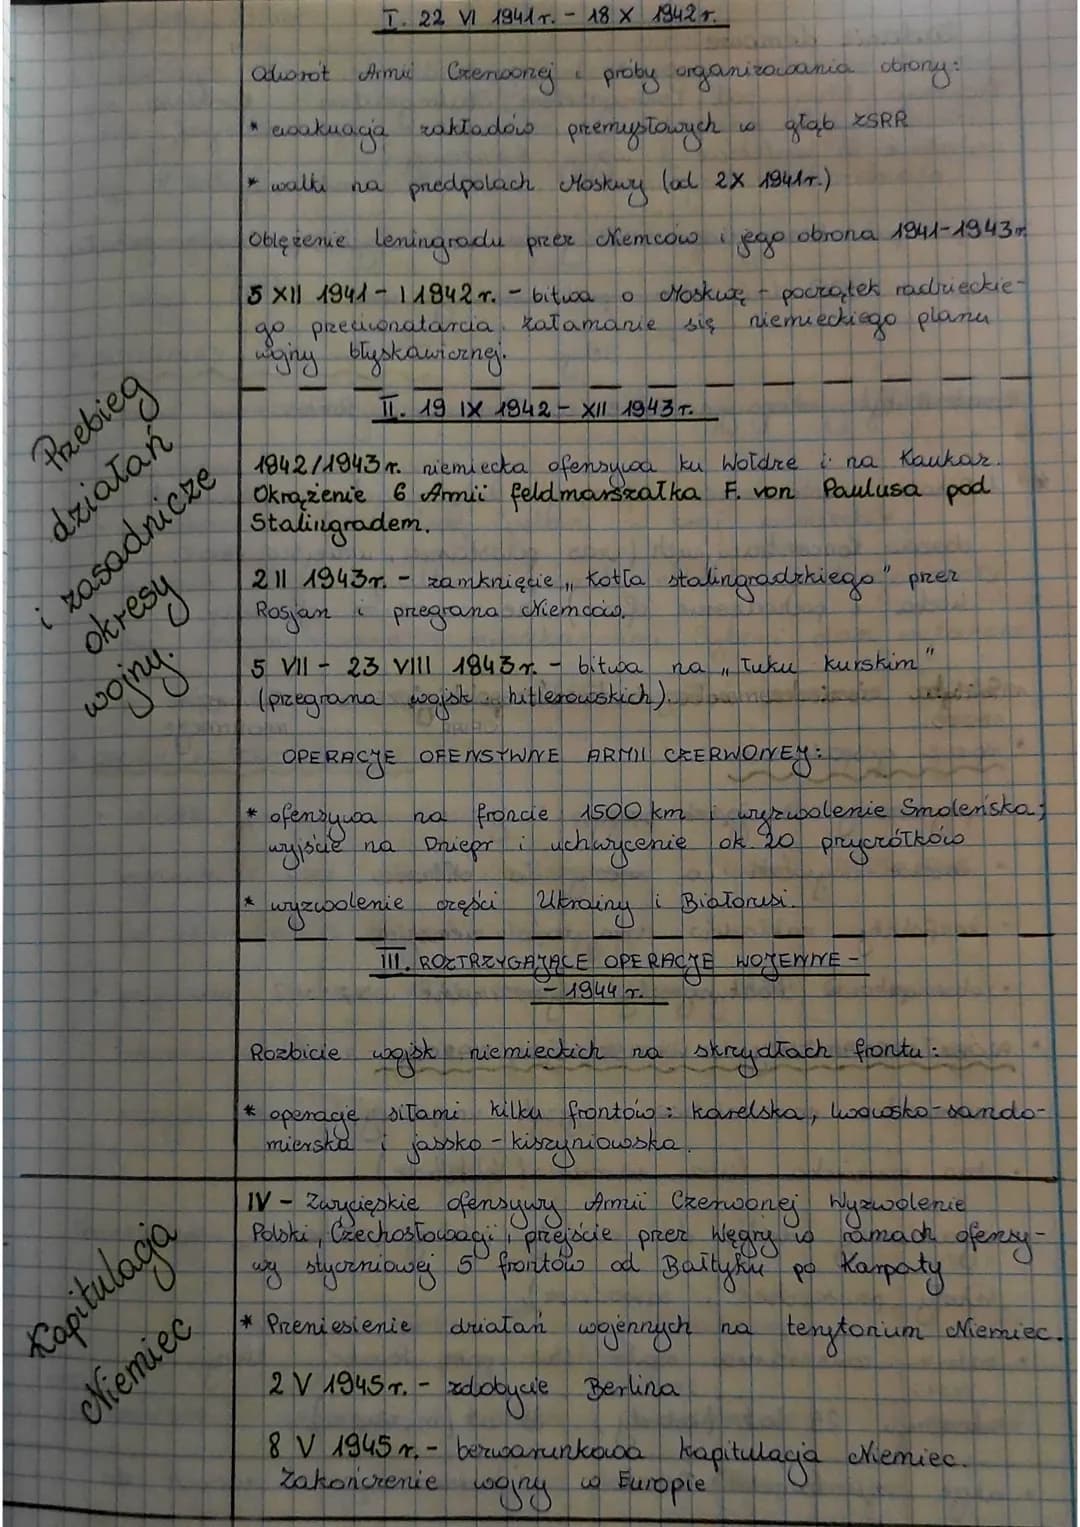 I. 22 VI 1941r. - 18 X 1942r.
Odwrót Armii Czerwonej i próby organizowania obrony:
* ewakuacja zakładów przemysłowych w głąb ZSRR
* walki na przedpolach Moskwy (od 2X 1941r.)
Oblężenie Leningradu przez Niemców i jego obrona 1941-1943r.
5 XII 1941 - I 1942r. - bitwa o Moskwę - początek radzieckie-
go przeciwnatarcia. Załamanie się niemieckiego planu
wojny błyskawicznej.
II. 19 IX 1942 - XII 1943r.
1942/1943r. niemiecka ofensywa ku Wołdze i na Kaukaz.
Okrążenie 6 Armii feldmarszałka F. von Paulusa pod
Stalingradem.
2 II 1943r. - zamknięcie "Kotła stalingradzkiego" przez
Rosjan i przegrana Niemców.
5 VII - 23 VIII 1943r. - bitwa na "Łuku kurskim"
(przegrana wojsk hitlerowskich).
OPERACJE OFENSYWNE ARMII CZERWONEJ:
* ofensywa na froncie 1500 km i wyzwolenie Smoleńska;
wyjście na Dniepr i uchwycenie ok. 20 przyczółków
* wyzwolenie części Ukrainy i Białorusi.
Przebieg
działań
i zasadnicze
okresy
wojny.
III. ROZTRZYGAJĄCE OPERACJE WOJENNE -
- 1944r.
Rozbicie wojsk niemieckich na skrzydłach frontu:
* operacje siłami kilku frontów: karelska, lwowsko-sando-
mierska i jassko-kiszyniowska.
IV - Zwycięskie ofensywy Armii Czerwonej Wyzwolenie
Polski, Czechosłowacji, przejście przez Węgry w ramach ofensy-
wy styczniowej 5 frontów od Bałtyku po Karpaty
* Przeniesienie działań wojennych na terytorium Niemiec.
2 V 1945r. - zdobycie Berlina
8 V 1945r. - bezwarunkowa kapitulacja Niemiec.
Zakończenie wojny w Europie
Kapitulacja
Niemiec